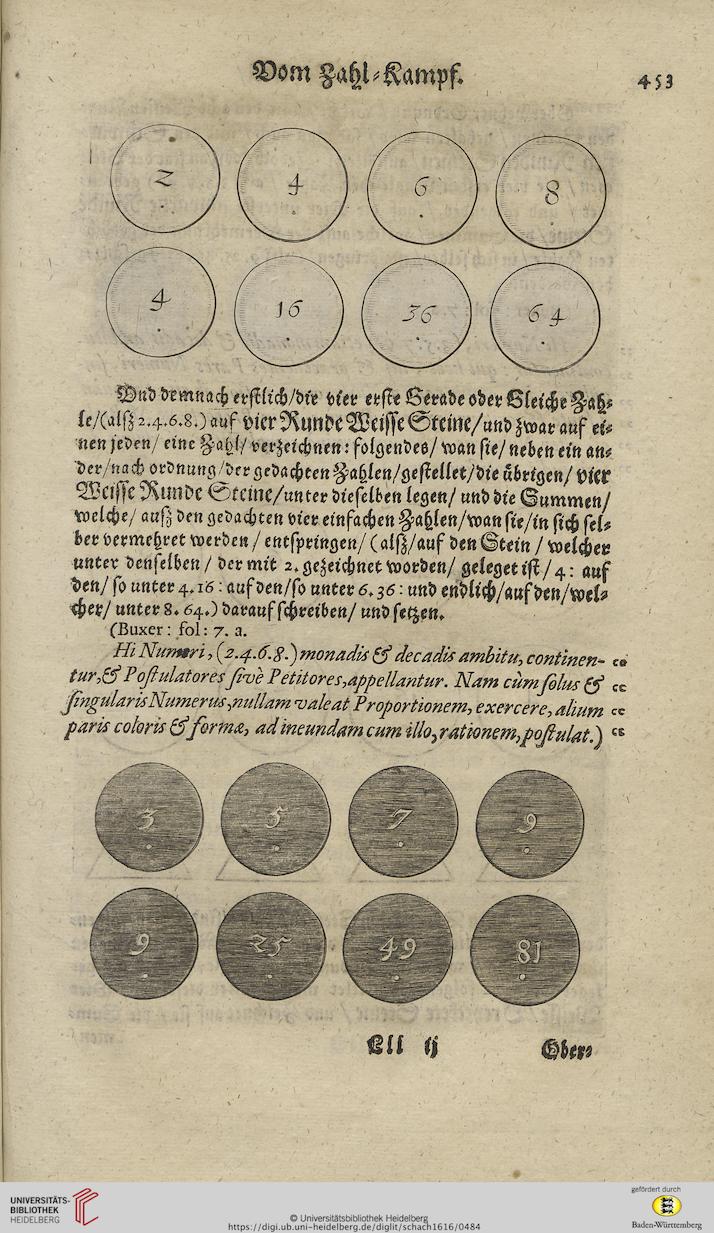 Vom Zahl-Kampf.
453
2 4 6 8
4 16 36 64
Vnd demnach erstlich/die vier erste Gerade oder Gleiche Zah-
le/(alsz 2.4.6.8.) auf vier Runde Weisse Steine/und zwar auf ei-
nen jeden/ eine Zahl/ verzeichnen: folgendes/ wan sie/ neben ein an-
der/nach ordnung/der gedachten Zahlen/gestellet/die übrigen/ vier
Weisse Runde Steine/unter dieselben legen/ und die Summen/
welche/ ausz den gedachten vier einfachen Zahlen/wan sie/in sich sel-
ber vermehret werden/ entspringen/ (alsz/auf den Stein/ welcher
unter denselben/ der mit 2. gezeichnet worden/ geleget ist/ 4: auf
den/ so unter 4. 16: auf den/so unter 6. 36: und endlich/auf den/wel-
cher/ unter 8. 64.) darauf schreiben/ und setzen.
(Buxer: fol: 7. a.
Hi Numeri, (2.4.6.8.) monadis & decadis ambitu, continen- cc
tur, & Postulatores sivè Petitores, appellantur. Nam cùm solus & cc
singularis Numerus, nullam valeat Proportionem, exercere, alium cc
paris coloris & formæ, ad ineundam cum illo, rationem, postulat.) cc
3 5 7 9
9 25 49 81
Lll ij
Ober-
UNIVERSITÄTS-
BIBLIOTHEK
HEIDELBERG
© Universitätsbibliothek Heidelberg
https://digi.ub.uni-heidelberg.de/diglit/schach1616/0484
gefördert durch
Baden-Württemberg